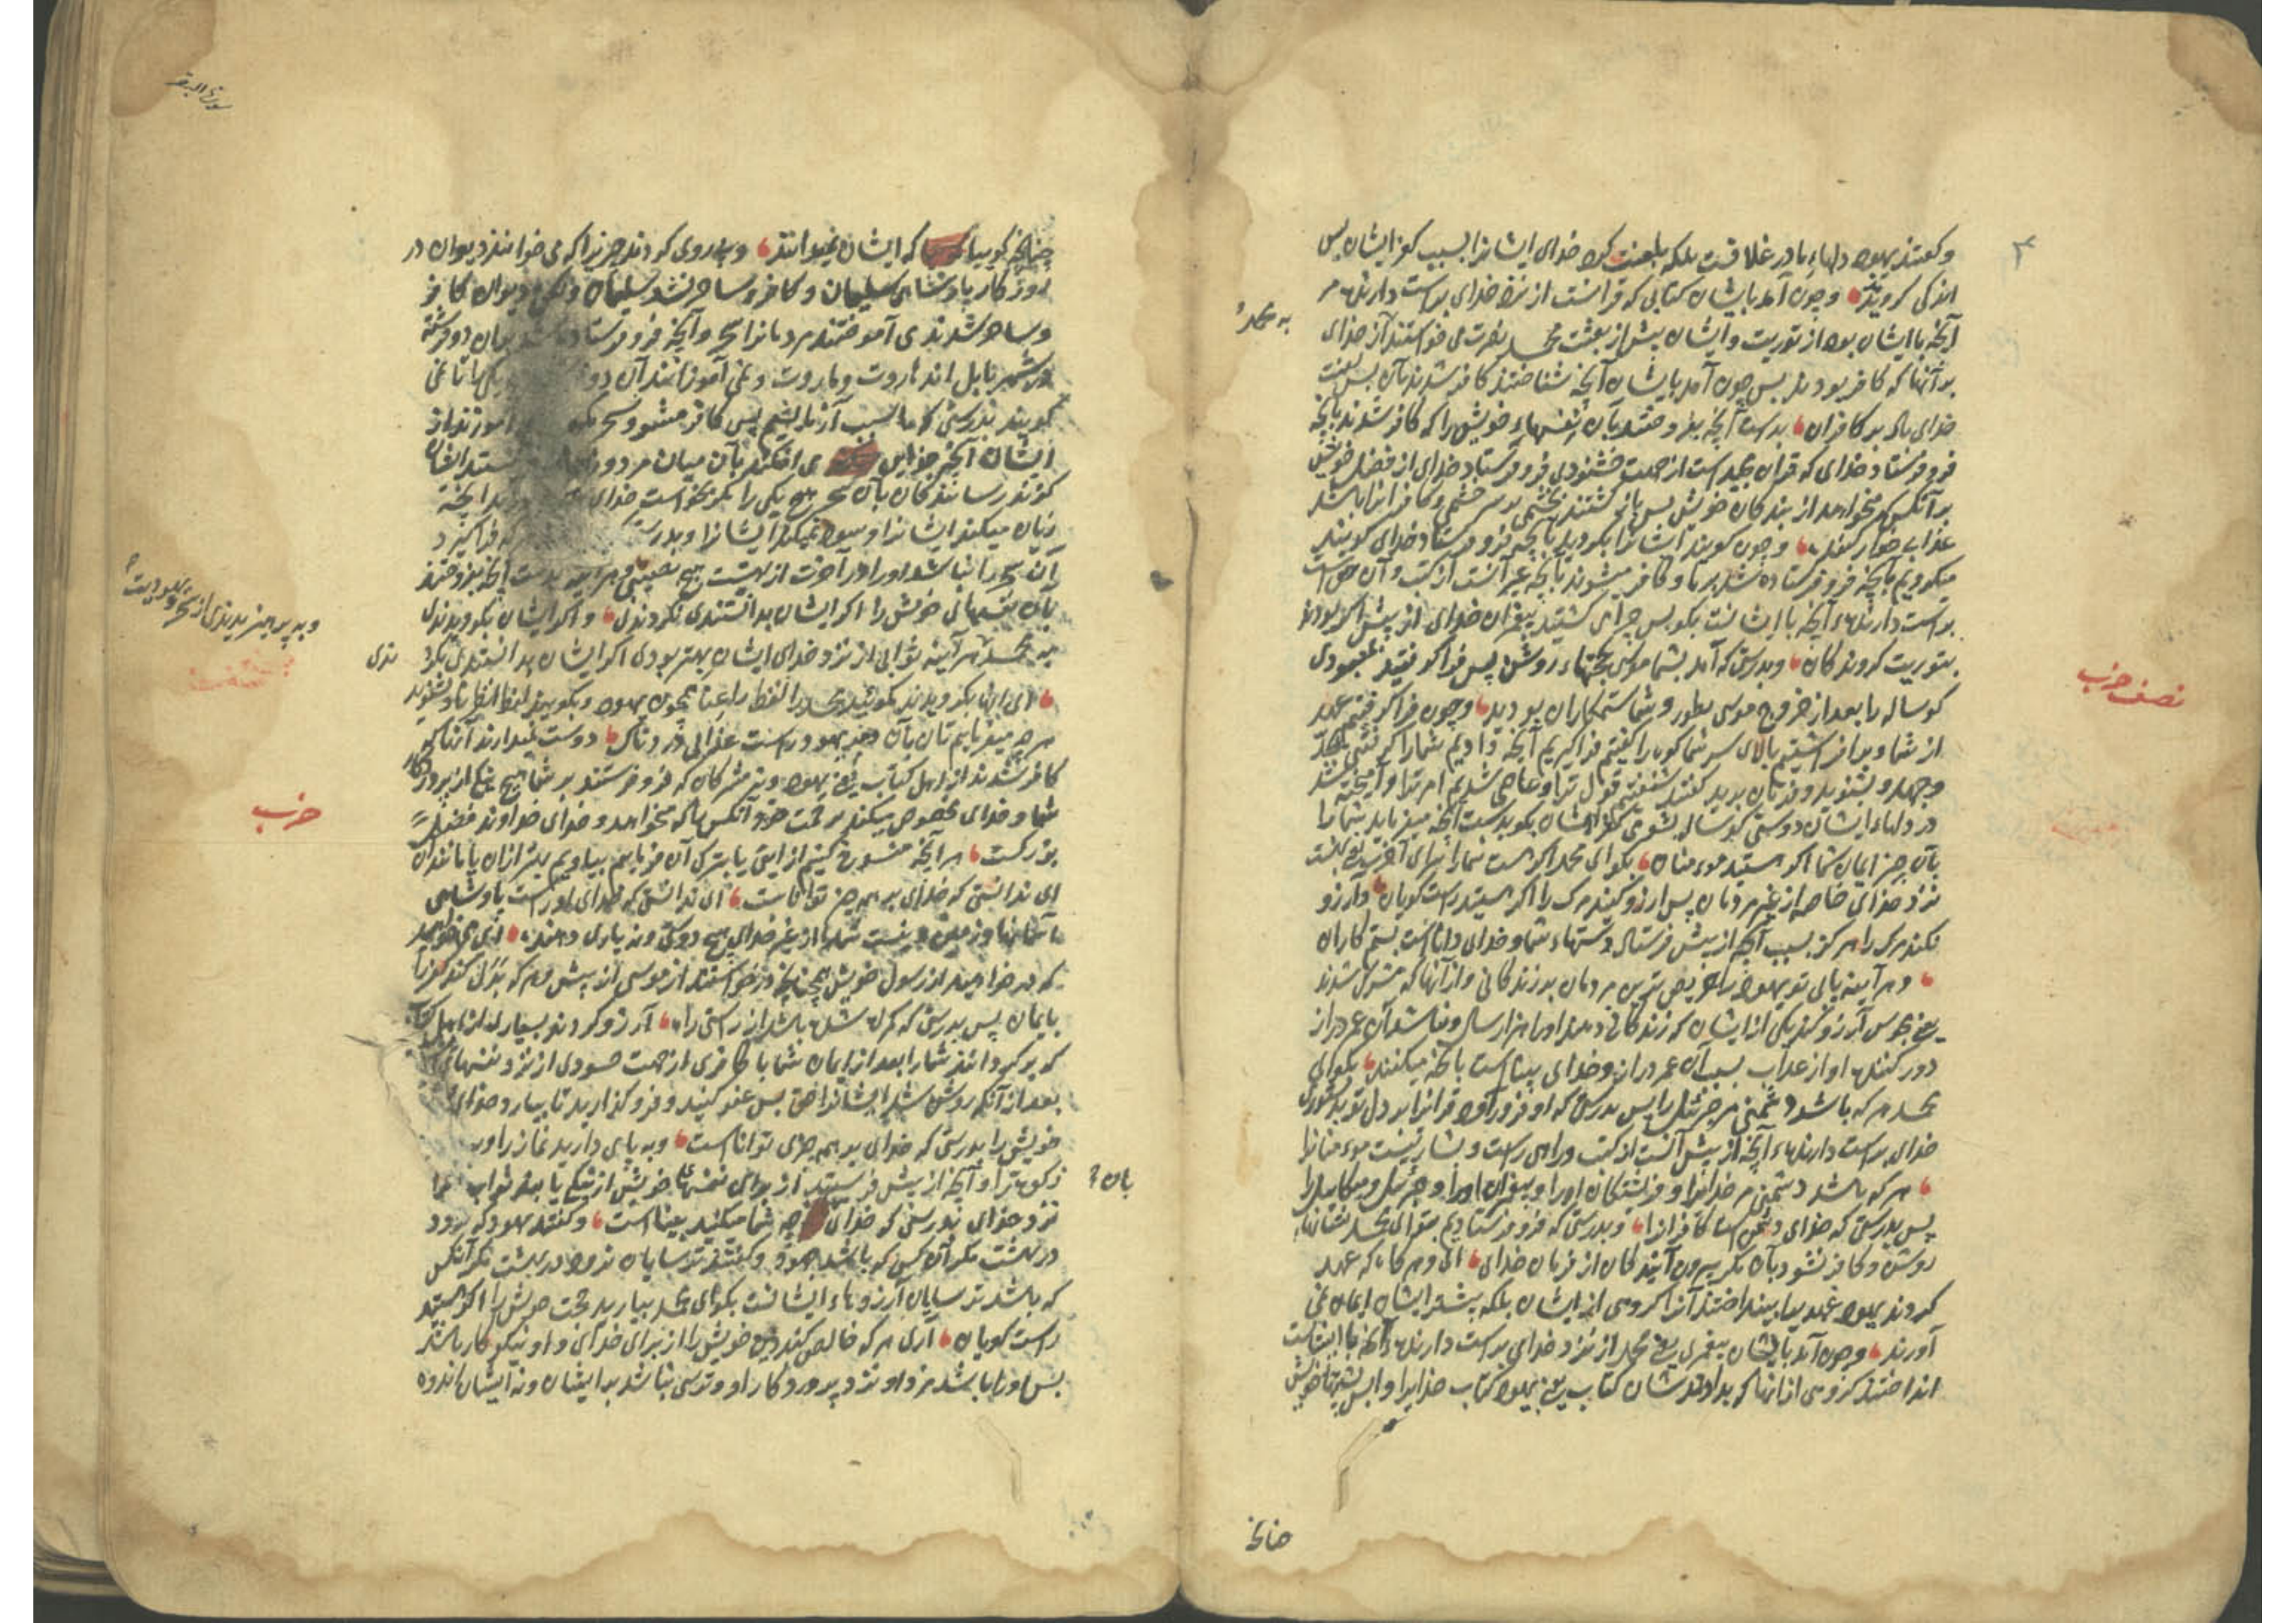 وکفتند یهود دلهاء ما در غلافست بلکه بلعنت کرد خدای ایشانرا بسبب کفر ایشان پس
اندکی کرویدند وچون آمد بایشان کتابی که قرانست از نزد خدای براست دارنده مر
آنچه با ایشان بود از توریت وایشان پیش از بعثت محمد نصرت می خواستند از خدای
به محمد
بر آنها که کافر بودند پس چون آمد بایشان آنچه شناختند کافر شدند بآن پس لعنت
خدای باد بر کافران بدست آنچه بفروختند بآن نفسهاء خویش را که کافر شدند بآنچه
فرو فرستاد خدای که قران مجید است از جهت فرو فرستاد خدای از فضل خویش
بر آنکس که میخواهد از بندکان خویش پس باز کشتند بخشمی بر سر خشمی وکافرانرا باشد
عذاب خوار کننده وچون کویند ایشانرا بکروید بآنچه فرو فرستاد خدای کویند
میکرویم بآنچه فرو فرستاده شد بر ما وکافر میشوند بآنچه غیر آنست از کتب وآن حق است
براست دارنده آنچه با ایشانست بکو پس چرا می کشتید پیغمبران خدای از پیش اکر بودید
بتوریت کروندکان وبدرستی که آمد بشما موسی بحجتهاء روشن پس فرا کرفتید بمعبودی
نصف حزب
کوساله را بعد از خروج موسی بطور وشما ستمکاران بودید وچون فرا کرفتیم عهد
از شما وبر افراشتیم بالای سر شما کوه را کفتیم فرا کیریم آنچه دادیم شما را
وجهد وبشنوید وفرمان برید کفتند شنفتیم قول ترا وعاصی شدیم امر ترا وآمیخته شد
در دلهاء ایشان دوستی کوساله بشومی کفر ایشان بکو بدست آنچه میفرماید شما را
بآن چیز ایمان شما اکر هستید مومنان بکو ای محمد اکر هست شما را سرای آخرت
نزد خدای خاصه از غیر مردمان پس آرزو کنید مرک را اکر هستید راست کویان وآرزو
نکنند مرک را هرکز بسبب آنچه از پیش فرستاد دستهاء شما وخدای داناست بستم کاران
وهر آینه یابی تو یهود را حریص ترین مردمان بر زندکانی واز آنها که مشرک شدند
یعنی مجوس آرزو کند یکی از ایشان که زندکانی دهند او را هزار سال ونباشد آن عمر دراز
دور کننده او از عذاب بسبب آن عمر دراز وخدای بیناست بآنچه میکنند بکو ای
محمد هر که باشد دشمنی مر جبرئیل را پس بدرستی که او فرود آورد قرانرا بر دل تو بدستوری
خدای براست دارنده آنچه از پیش آنست از کتب وراه راست وبشارتیست مومنانرا
هر که باشد دشمنی مر خدایرا وفرشتکان او را وپیغمبران او را وجبرئیل ومیکاییل را
پس بدرستی که خدای دشمن است کافرانرا وبدرستی که فرو فرستادیم بتو ای محمد نشانهاء
روشن وکافر نشود بآن مکر بیرون آیندکان از فرمان خدای ای وهر کاه که عهد
کردند یهود عهد بینداختند آنرا کروهی از ایشان بلکه بیشتر ایشان ایمان نمی
آورند وچون آمد بایشان پیغمبری یعنی محمد از نزد خدای براست دارنده آنچه با ایشانست
انداختند کروهی از آنها که شان کتاب یعنی یهود کتاب خدایرا واپس پشتهاء خویش
چنانچ
سورة البقره
چنانچ کوییا که ایشان نمیدانند وپی روی کردند چیزیرا که می خواندند دیوان در
روزکار پادشاهی سلیمان وکافر وساحر نشد سلیمان ولکن دیوان کافر
وساحر شدند می آموختند مردمانرا سحر وآنچه فرو فرستاده شد بدان دو فرشته
در شهر بابل اند هاروت وماروت ونمی آموزانند آن دو یکی را تا نمی
کویند بدرستی که ما بسبب آزمایشیم پس کافر مشو آموزند از
ایشان آنچه جدایی می افکند بآن میان مرد وزن ونیستند ایشان
کزند رسانندکان بآن سحر هیچ یکی را مکر بخواست خدای آنچه
زیان میکند ایشانرا وسود نمیکند ایشانرا وبدرستی که فرا کیرد
آن سحر را نباشد او را در آخرت از بهشت هیچ نصیبی وهر آینه بدست آنچه بفروختند
بآن نفسهای خویش را اکر ایشان بدانستندی نکردندی واکر ایشان بکرویدندی
وبه پرهیزیدندی از سحر
به محمد هر آینه ثوابی از نزد خدای ایشان بهتر بودی اکر ایشان بدانستندی
ندی
ای آنها که بکرویدند مکویید محمد را لفظ راعنا همچون یهود وبکویید لفظ انظرنا وبشنوید
هر چه میفرمایم تان بآن ومر یهود راست عذابی دردناک دوست نمیدارند آنانکه
کافر شدند از اهل کتاب یعنی یهود ونه مشرکان که فرو فرستند بر شما هیچ نیکی از پروردکار
حزب
شما وخدای مخصوص میکند برحمت خود آنکس را که میخواهد وخدای خداوند فضل
بزرکست هر آنچه منسوخ کنیم از آیتی یا بترک آن فرماییم بیاوریم بهتر از آن یا مانند آن
ای ندانستی که خدای بر همه چیز تواناست ای ندانستی که خدای او راست پادشاهی
آسمانها وزمین ونیست شما را از غیر خدای هیچ دوستی ونه یاری دهنده ای می خواهید
که در خواهید از رسول خویش همچنانچ در خواستند از موسی از پیش وهر که بدل کند کفر را
بایمان پس بدرستی که کم شده باشد از راستی راه آرزو کردند بسیار از اهل کتاب
که بر کردانند شما را بعد از ایمان شما با کافری از جهت حسودی از نزد نفسهای
بعد از آنکه روشن شد ایشانرا حق پس عفو کنید وفرو کذارید تا بیارد خدای
خویش را بدرستی که خدای بر همه چیزی تواناست وبه پای دارید نماز را و
زکوة را وآنچه از پیش فرستید از برای نفسهاء خویش از نیکی یابید ثواب
بآن
نزد خدای بدرستی که خدای بآنچه شما میکنید بیناست وکفتند یهود که نرود
در بهشت مکر آن کس که باشد یهود وکفتند ترسایان نرود در بهشت مکر آنکس
که باشد ترسایان آرزوهاء ایشانست بکو ای محمد بیارید حجت خویش را اکر هستید
راست کویان آری هر که خالص کند دین خویش را از برای خدای واو نیکوکار باشد
پس او را باشد مزد او نزد پروردکار او وترسی نباشد بر ایشان ونه ایشان اندوه